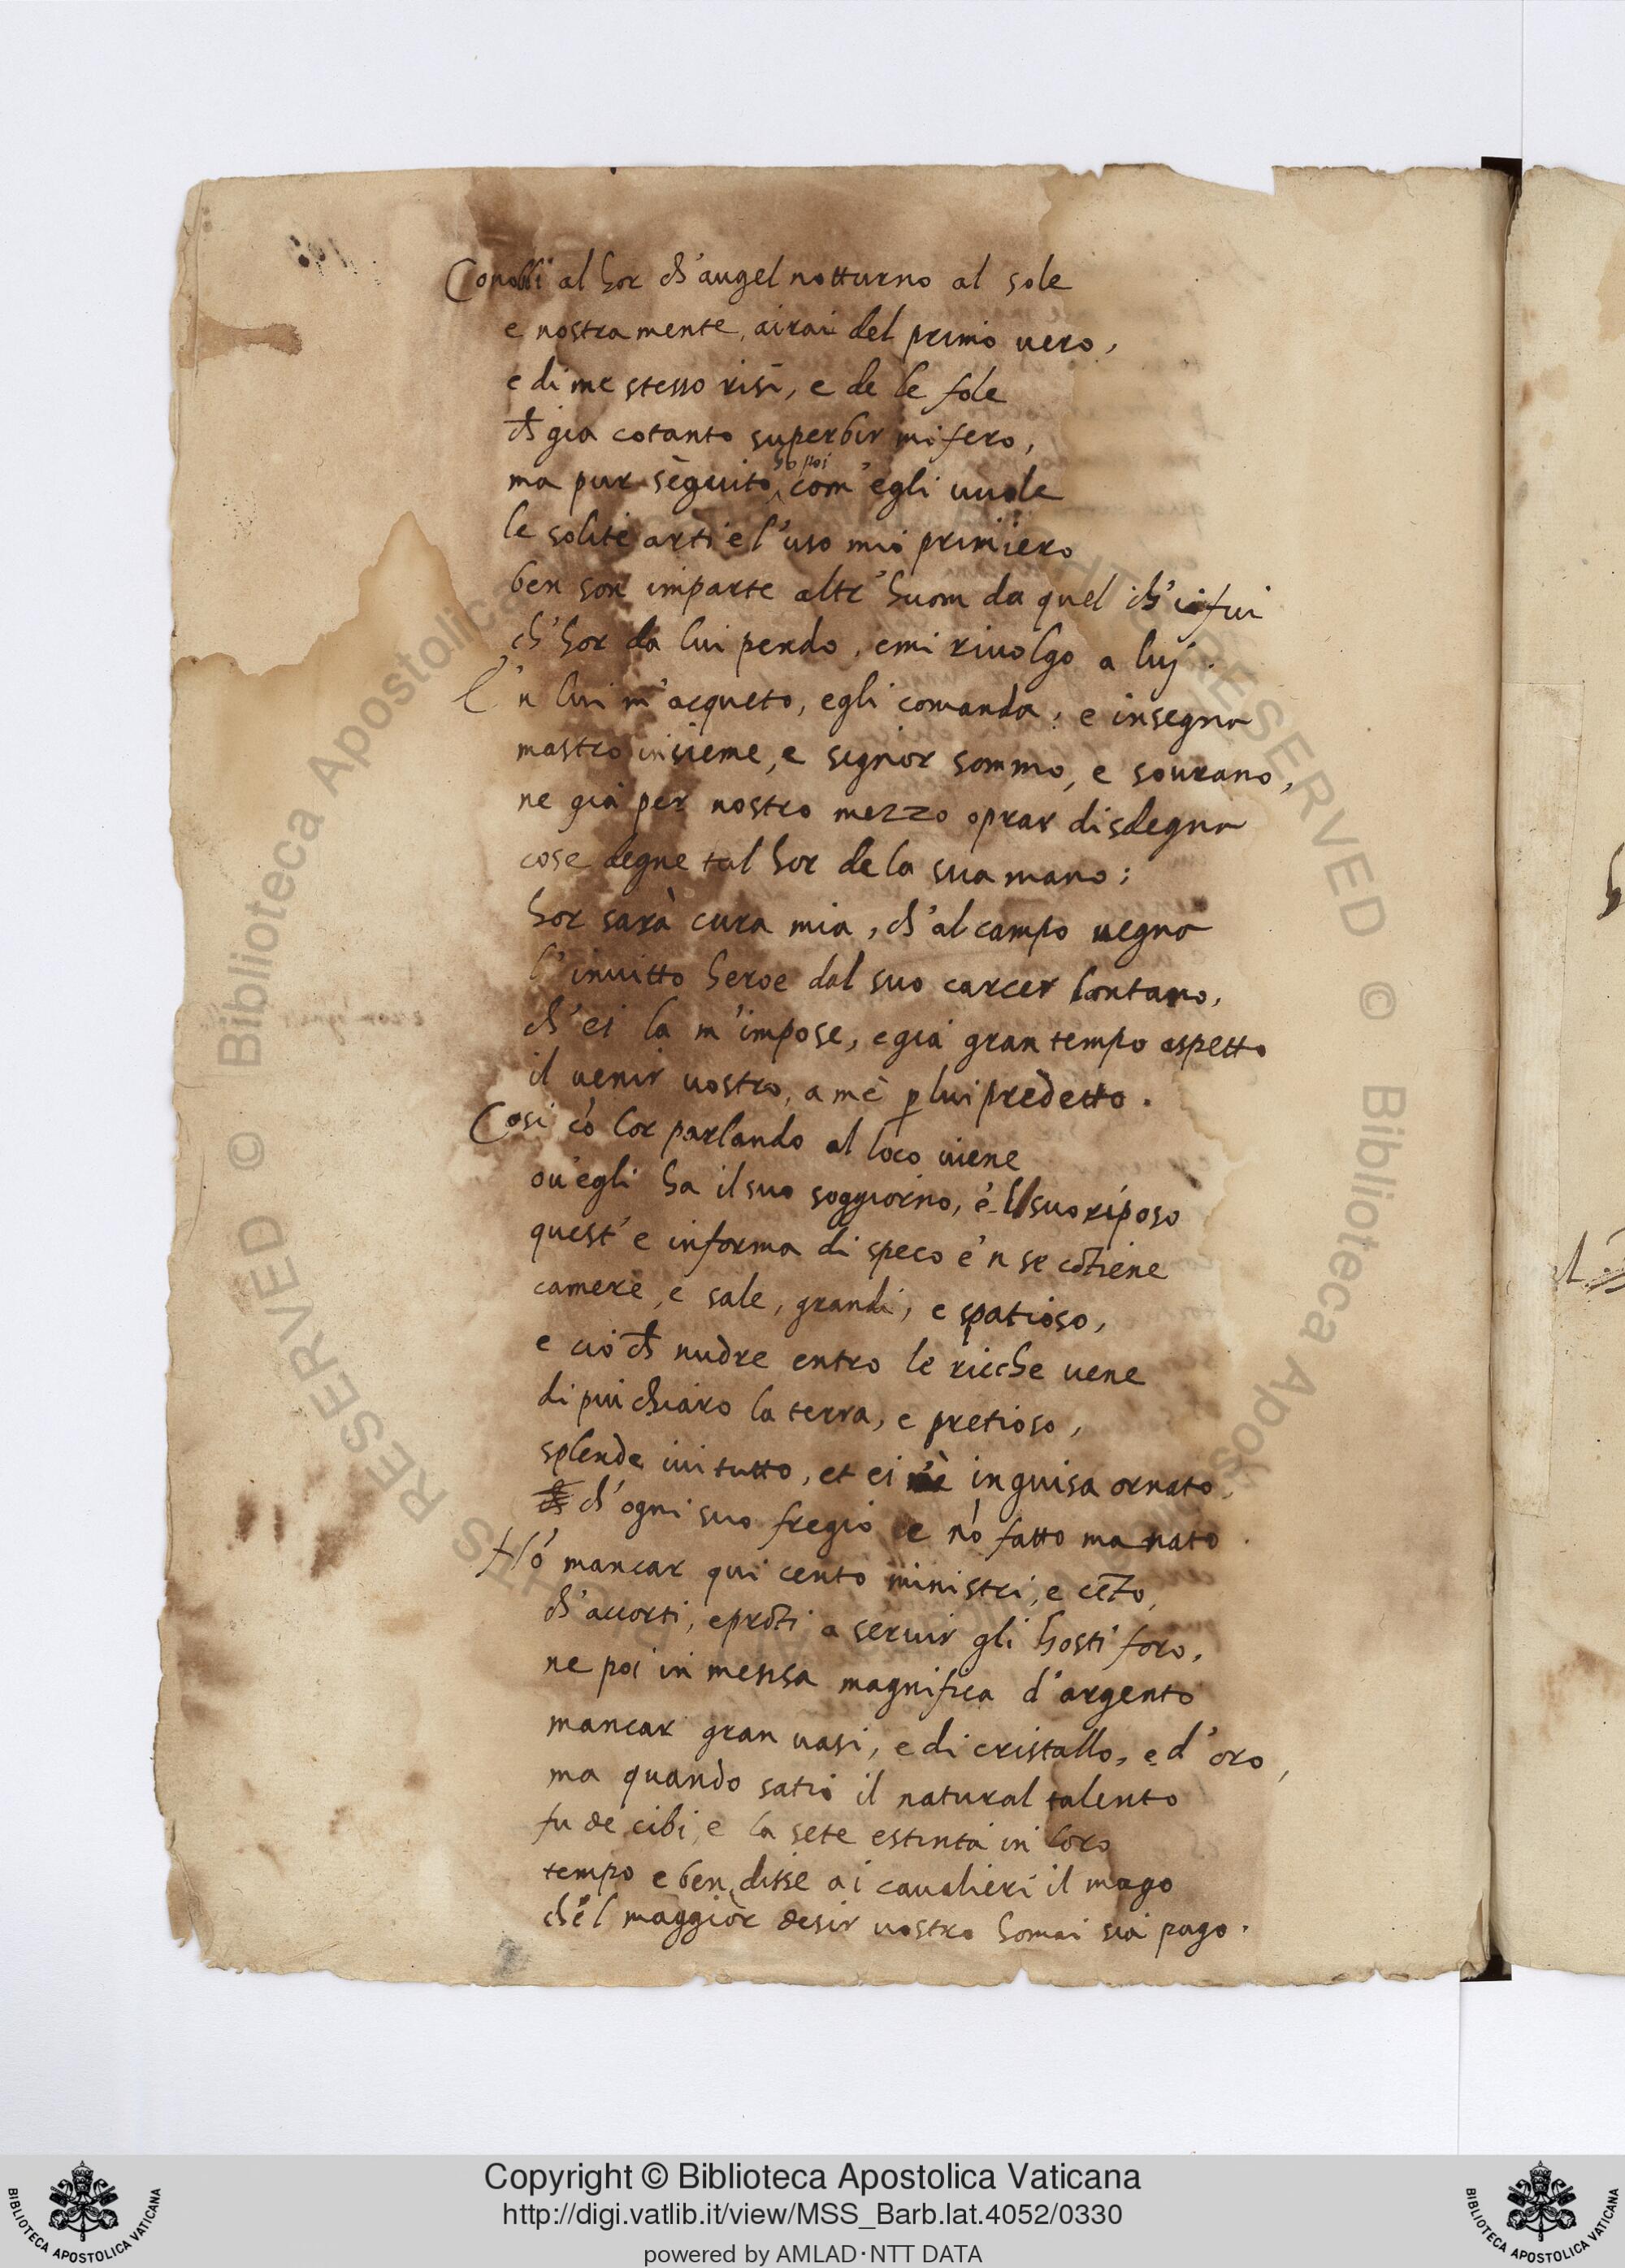 Conobbi al hor ch'augel notturno al sole
e nostra mente, ai rai del primo uero,
e di me stesso risi, e de le fole
ch già cotanto superbir mi fero,
ho poi
ma pur sèguito com' egli uuole
le solite arti e l'uso mio primiero
ben son in parte altr' huom da quel ch'io fui
ch'hor da lui pendo, e mi riuolgo a luj.
E 'n lui m'acqueto, egli comanda, e insegna
mastro insieme, e signor sommo, e sourano,
ne già per nostro mezzo oprar disdegna
cose degne tal hor de la sua mano;
hor sarà cura mia, ch'al campo uegna
l'inuitto heroe dal suo carcer lontano,
ch'ei la m'impose, e già gran tempo aspetto
il uenir uostro, a me ꝑ lui predetto.
Cosi cõ lor parlando al loco uiene
ou'egli ha il suo soggiorno, e 'l suo riposo
quest' e in forma di speco e 'n se cõtiene
camere, e sale, grandi, e spatioso,
e ciò ch nudre entro le ricche uene
di più chiaro la terra, e pretioso,
splende iui tutto, et ei n'è in guisa ornato
ch'ogni suo fregio e nõ fatto ma nato.
Nõ mancar qui cento ministri, e cẽto,
ch'accorti, e prõti a seruir gli hosti foro,
ne poi in mensa magnifica d'argento
mancar gran uasi, e di cristallo, e d'oro,
ma quando satio il natural talento
fu de cibi, e la sete estinta in loro
tempo e ben, disse ai caualieri il mago
che 'l maggior desir uostro homai sia pago.
Copyright © Biblioteca Apostolica Vaticana
http://digi.vatlib.it/view/MSS_Barb.lat.4052/0330
powered by AMLAD·NTT DATA